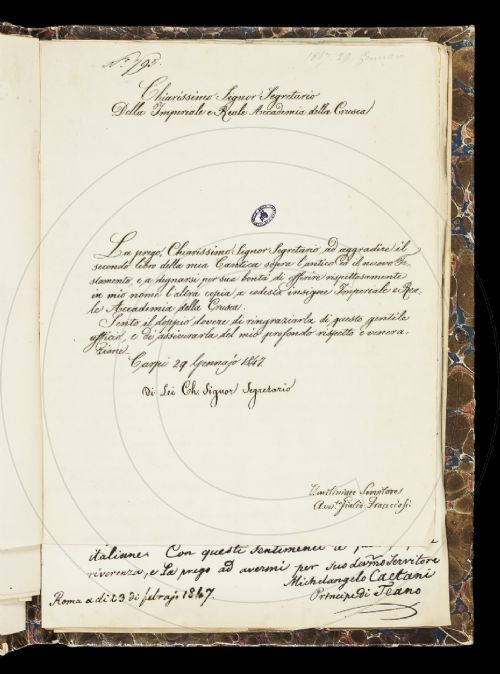 N.° 793.
1847. 29. Gennaio
Chiarissimo Signor Segretario
Della Imperiale e Reale Accademia della Crusca
La prego, Chiarissimo Signor Segretario, ad aggradire il
secondo libro della mia Cantica sopra l'antico ed il nuovo Te-
stamento e a degnarsi per sua bontà di offerire rispettosamente
in mio nome l'altra copia a codesta insigne Imperiale e Rea-
le Accademia della Crusca.
Sento il doppio dovere di ringraziarla di questo gentile
ufficio, e di assicurarla del mio profondo rispetto e venera-
zione.
Carpi 29 Gennajo 1847.
Di Lei Ch. Signor Segretario
Servitore
italiane. Con questi sentimenti
riverenza, e La prego ad avermi per suo devmo Servitore
Michelangelo Caetani
Principe di Teano
Roma a dì 23 di febrajo 1847.